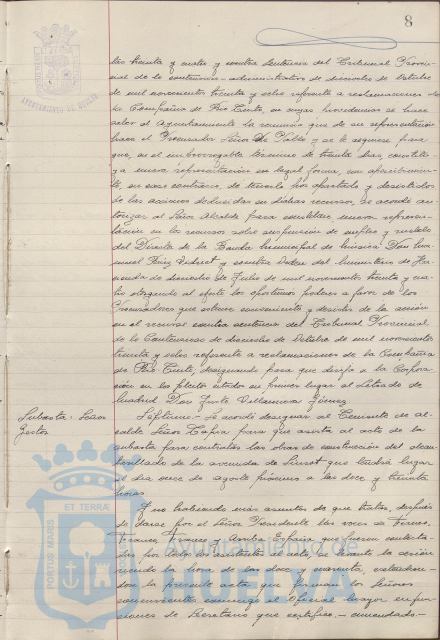 8
tos treinta y cuatro y contra sentencia del Tribunal Provin-
cial de lo contencioso-administrativo de dieciseis de Octubre
de mil novecientos treinta y ocho referente a reclamaciones de
la Compañia de Rio Tinto, en cuyas providencias se hace
saber al Ayuntamiento la renuncia que de su representacion
hace el Procurador Señor de Valle y se le requiere para
que, en el improrrogable termino de treinta dias, constitu-
ya nueva representacion en legal forma, con apercibimien-
to, en caso contrario, de tenerlo por apartado y desistido
de las acciones deducidas en dichos recursos, se acordó au-
torizar al Señor Alcalde para constituir nueva represen-
tacion en los recursos sobre suspension de empleo y sueldo
del Director de la Banda Municipal de musica Don
y contra Orden del Ministerio de Ha-
cienda de dieciocho de Julio de mil novecientos treinta y cua-
tro otorgando al efecto los oportunos poderes a favor de los
Procuradores que estime conveniente y desistir de la accion
en el recurso contra sentencia del Tribunal Provincial
de lo Contencioso de dieciseis de Octubre de mil novecientos
treinta y ocho referente a reclamaciones de la Compañia
de Rio Tinto, designando para que dirija a la Corpora-
ción en los pleitos citados en primer lugar al Letrado de
Madrid Don Justo Villanueva Gomez
Subasta: Señor
Gestor
Septimo.- Se acordó designar al Teniente de Al-
calde Señor Tapia para que asista al acto de la
subasta para contratar las obras de construccion del alcan-
tarillado de la avenida de que tendrá lugar
el dia once de agosto próximo a las doce y treinta
horas
Y no habiendo más asuntos de que tratar, despues
de darse por el Señor Presidente las voces de Franco,
Franco, Franco y Arriba España que fueron contesta-
das por todos los asistentes al acto, se levantó la sesión
siendo la hora de las doce y cuarenta, extendien-
dose la presente acta que firman los Señores
concurrentes conmigo el Oficial Mayor en fun-
ciones de Secretario que certifico.- enmendado.-
AYUNTAMIENTO DE HUELVA
PORTUS MARIS ET TERRAE
Ayuntamiento de
HUELVA